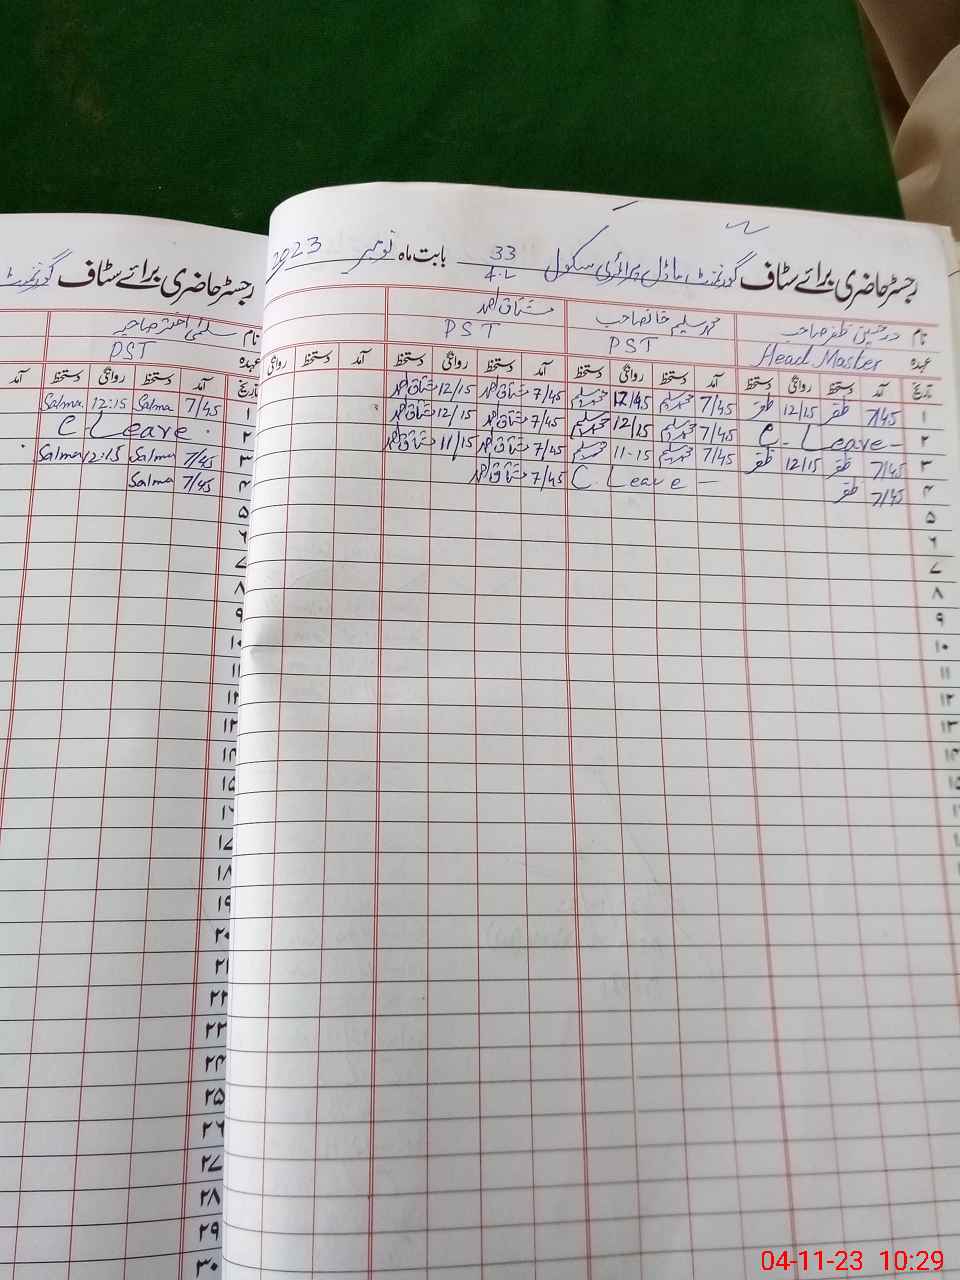 رجسٹر حاضری برائے سٹاف گورنمنٹ ماڈل پرائمری سکول 33 بابت ماہ نومبر 2023
نام ظفر صاحب محمد سلیم خانصاحب مشتاق احمد
عہدہ Head Master PST PST
تاریخ آمد دستخط روانگی دستخط آمد دستخط روانگی دستخط آمد دستخط روانگی دستخط آمد دستخط روانگی
۱ 7/45 ظفر 12/15 ظفر 7/45 محمد سلیم 12/45 محمد سلیم 7/45 مشتاق احمد 12/15 مشتاق احمد
۲ C. Leave - 7/45 محمد سلیم 12/15 محمد سلیم 7/45 مشتاق احمد 12/15 مشتاق احمد
۳ 7/45 ظفر 12/15 ظفر 7/45 محمد سلیم 11-15 محمد سلیم 7/45 مشتاق احمد 11/15 مشتاق احمد
۴ 7/45 ظفر C. Leave - 7/45 مشتاق احمد
۵
۶
۷
۸
۹
۱۰
۱۱
۱۲
۱۳
۱۴
۱۵
رجسٹر حاضری برائے سٹاف گورنمنٹ
نام سلمیٰ اختر صاحبہ
عہدہ PST
تاریخ آمد دستخط روانگی دستخط آمد
۱ 7/45 Salma 12:15 Salma
۲ C-Leave
۳ 7/45 Salma 12:15 Salma
۴ 7/45 Salma
۵
۶
۷
۸
۹
۱۰
۱۱
۱۲
۱۳
۱۴
۱۵
۱۶
۱۷
۱۸
۱۹
۲۰
۲۱
۲۲
۲۳
۲۴
۲۵
۲۶
۲۷
۲۸
۲۹
۳۰
04-11-23 10:29